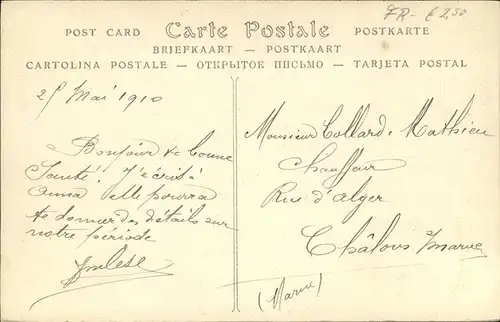 FR- € 2,50
POST CARD Carte Postale POSTKARTE
BRIEFKAART — POSTKAART
CARTOLINA POSTALE — ОТКРЫТОЕ ПИСЬМО — TARJETA POSTAL
25 Mai 1910
Bonjour & bonne
Santé. J'écris à
Anna elle pourra
te donner des détails sur
notre période
Monsieur Collard-Mathieu
Chauffeur
Rue d'Alger
Châlons s/marne
(Marne)